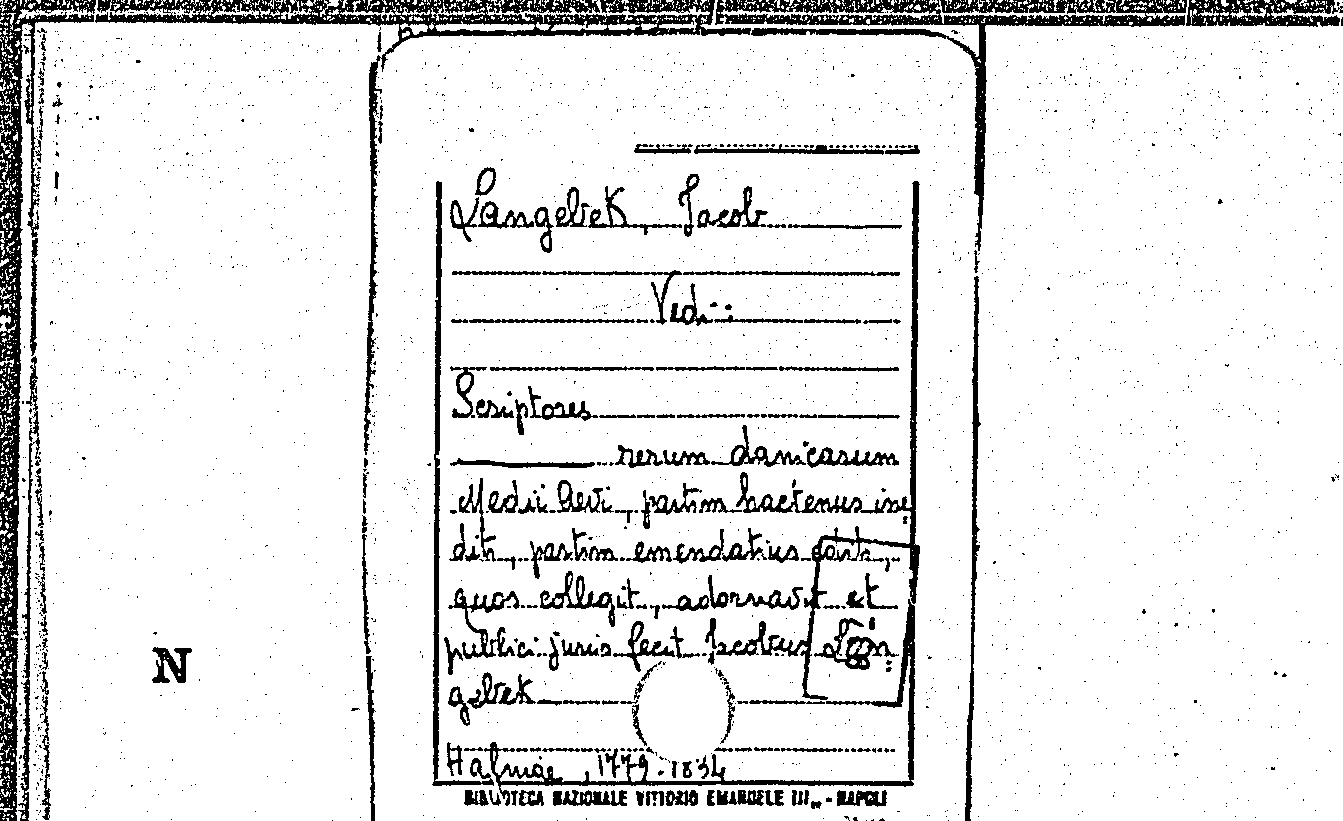 Langebek, Jacob
Vedi:
Scriptores
rerum danicarum
Medii Aevi, partim hactenus ine
diti, partim emendatius editi,
quos collegit, adornavit et
publici juris fecit Jacobus Lan
gebek
Hafniae, 1779-1834
N
BIBLIOTECA NAZIONALE VITTORIO EMANUELE III. - NAPOLI